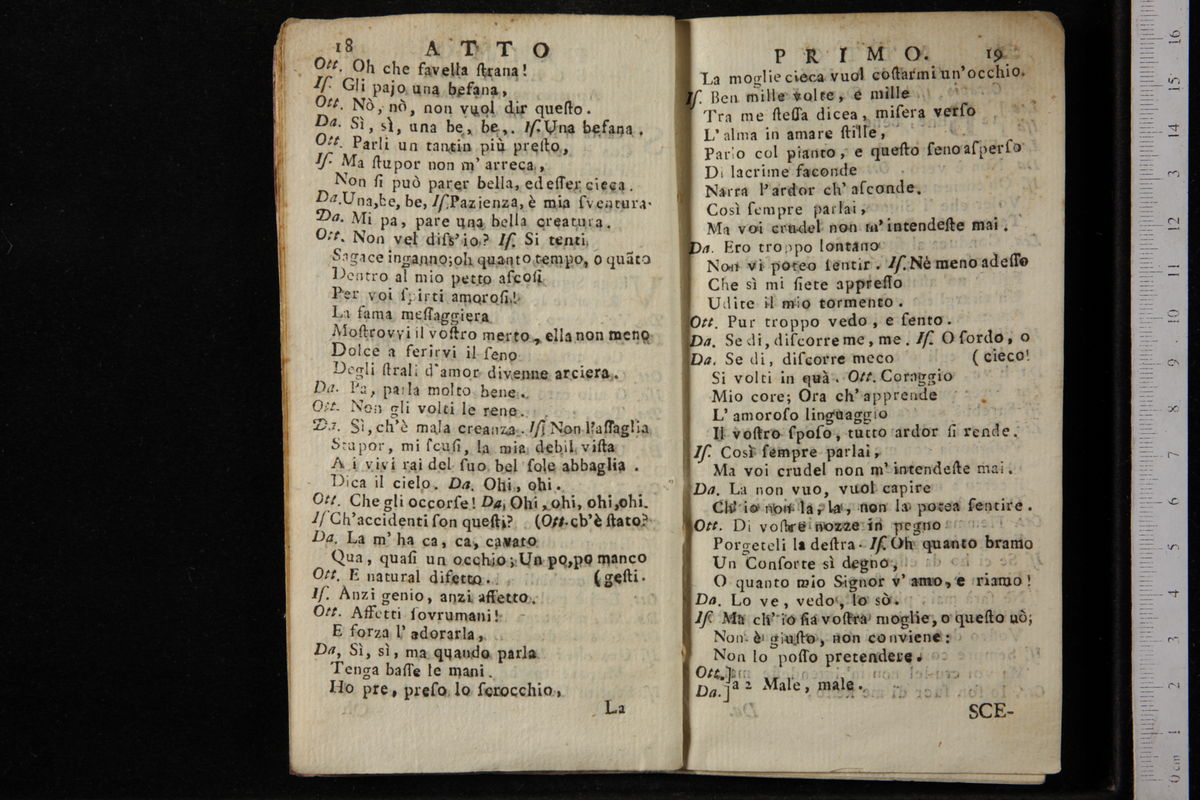 18 ATTO
Ott. Oh che favella ſtrana!
Iſ. Gli pajo una befana,
Ott. Nò, nò, non vuol dir queſto.
Da. Sì, sì, una be, be,. Iſ. Una befana.
Ott. Parli un tantin più preſto,
Iſ. Ma ſtupor non m' arreca,
Non ſi può parer bella, ed eſſer cieca.
Da. Una, be, be, Iſ. Pazienza, è mia ſventura.
Da. Mi pa, pare una bella creatura.
Ott. Non vel diſs' io? Iſ. Si tenti
Sagace inganno; oh quanto tempo, o quãto
Dentro al mio petto aſcoſi
Per voi ſpirti amoroſi!
La fama meſſaggiera
Moſtrovvi il voſtro merto, ella non meno
Dolce a ferirvi il ſeno
Degli ſtrali d'amor divenne arciera.
Da. Pa, parla molto bene.
Ott. Non gli volti le rene.
Da. Sì, ch'è mala creanza. Iſ. Non l'aſſaglia
Stupor, mi ſcuſi, la mia debil viſta
A i vivi rai del ſuo bel ſole abbaglia.
Dica il cielo. Da. Ohi, ohi.
Ott. Che gli occorſe! Da. Ohi, ohi, ohi, ohi.
Iſ Ch'accidenti ſon queſti? (Ott. ch'è ſtato?
Da. La m' ha ca, ca, cavato
Qua, quaſi un occhio; Un po, po manco
Ott. E natural difetto. (geſti.
Iſ. Anzi genio, anzi affetto.
Ott. Affetti ſovrumani!
E forza l' adorarla,
Da, Sì, sì, ma quando parla
Tenga baſſe le mani.
Ho pre, preſo lo ſcrocchio,
La
PRIMO. 19
La moglie cieca vuol coſtarmi un'occhio.
Iſ. Ben mille volte, e mille
Tra me ſteſſa dicea, miſera verſo
L' alma in amare ſtille,
Parlo col pianto, e queſto ſeno aſperſo
Di lacrime faconde
Narra l'ardor ch' aſconde.
Così ſempre parlai,
Ma voi crudel non m' intendeſte mai.
Da. Ero troppo lontano
Non vi poteo ſentir. Iſ. Nè meno adeſſo
Che sì mi ſiete appreſſo
Udite il mio tormento.
Ott. Pur troppo vedo, e ſento.
Da. Se di, diſcorre me, me. Iſ. O ſordo, o
Da. Se di, diſcorre meco (cieco!
Si volti in quà. Ott. Coraggio
Mio core; Ora ch' apprende
L' amoroſo linguaggio
Il voſtro ſpoſo, tutto ardor ſi rende.
Iſ. Così ſempre parlai,
Ma voi crudel non m' intendeſte mai.
Da. La non vuo, vuol capire
Ch' io non la, la, non la potea ſentire.
Ott. Di voſtre nozze in pegno
Porgeteli la deſtra. Iſ. Oh quanto bramo
Un Conſorte sì degno,
O quanto mio Signor v' amo, e riamo!
Da. Lo ve, vedo, lo sò.
Iſ. Ma ch' io ſia voſtra moglie, o queſto nò;
Non è giuſto, non conviene:
Non lo poſſo pretendere.
Ott.]
Da.] a 2 Male, male.
SCE-